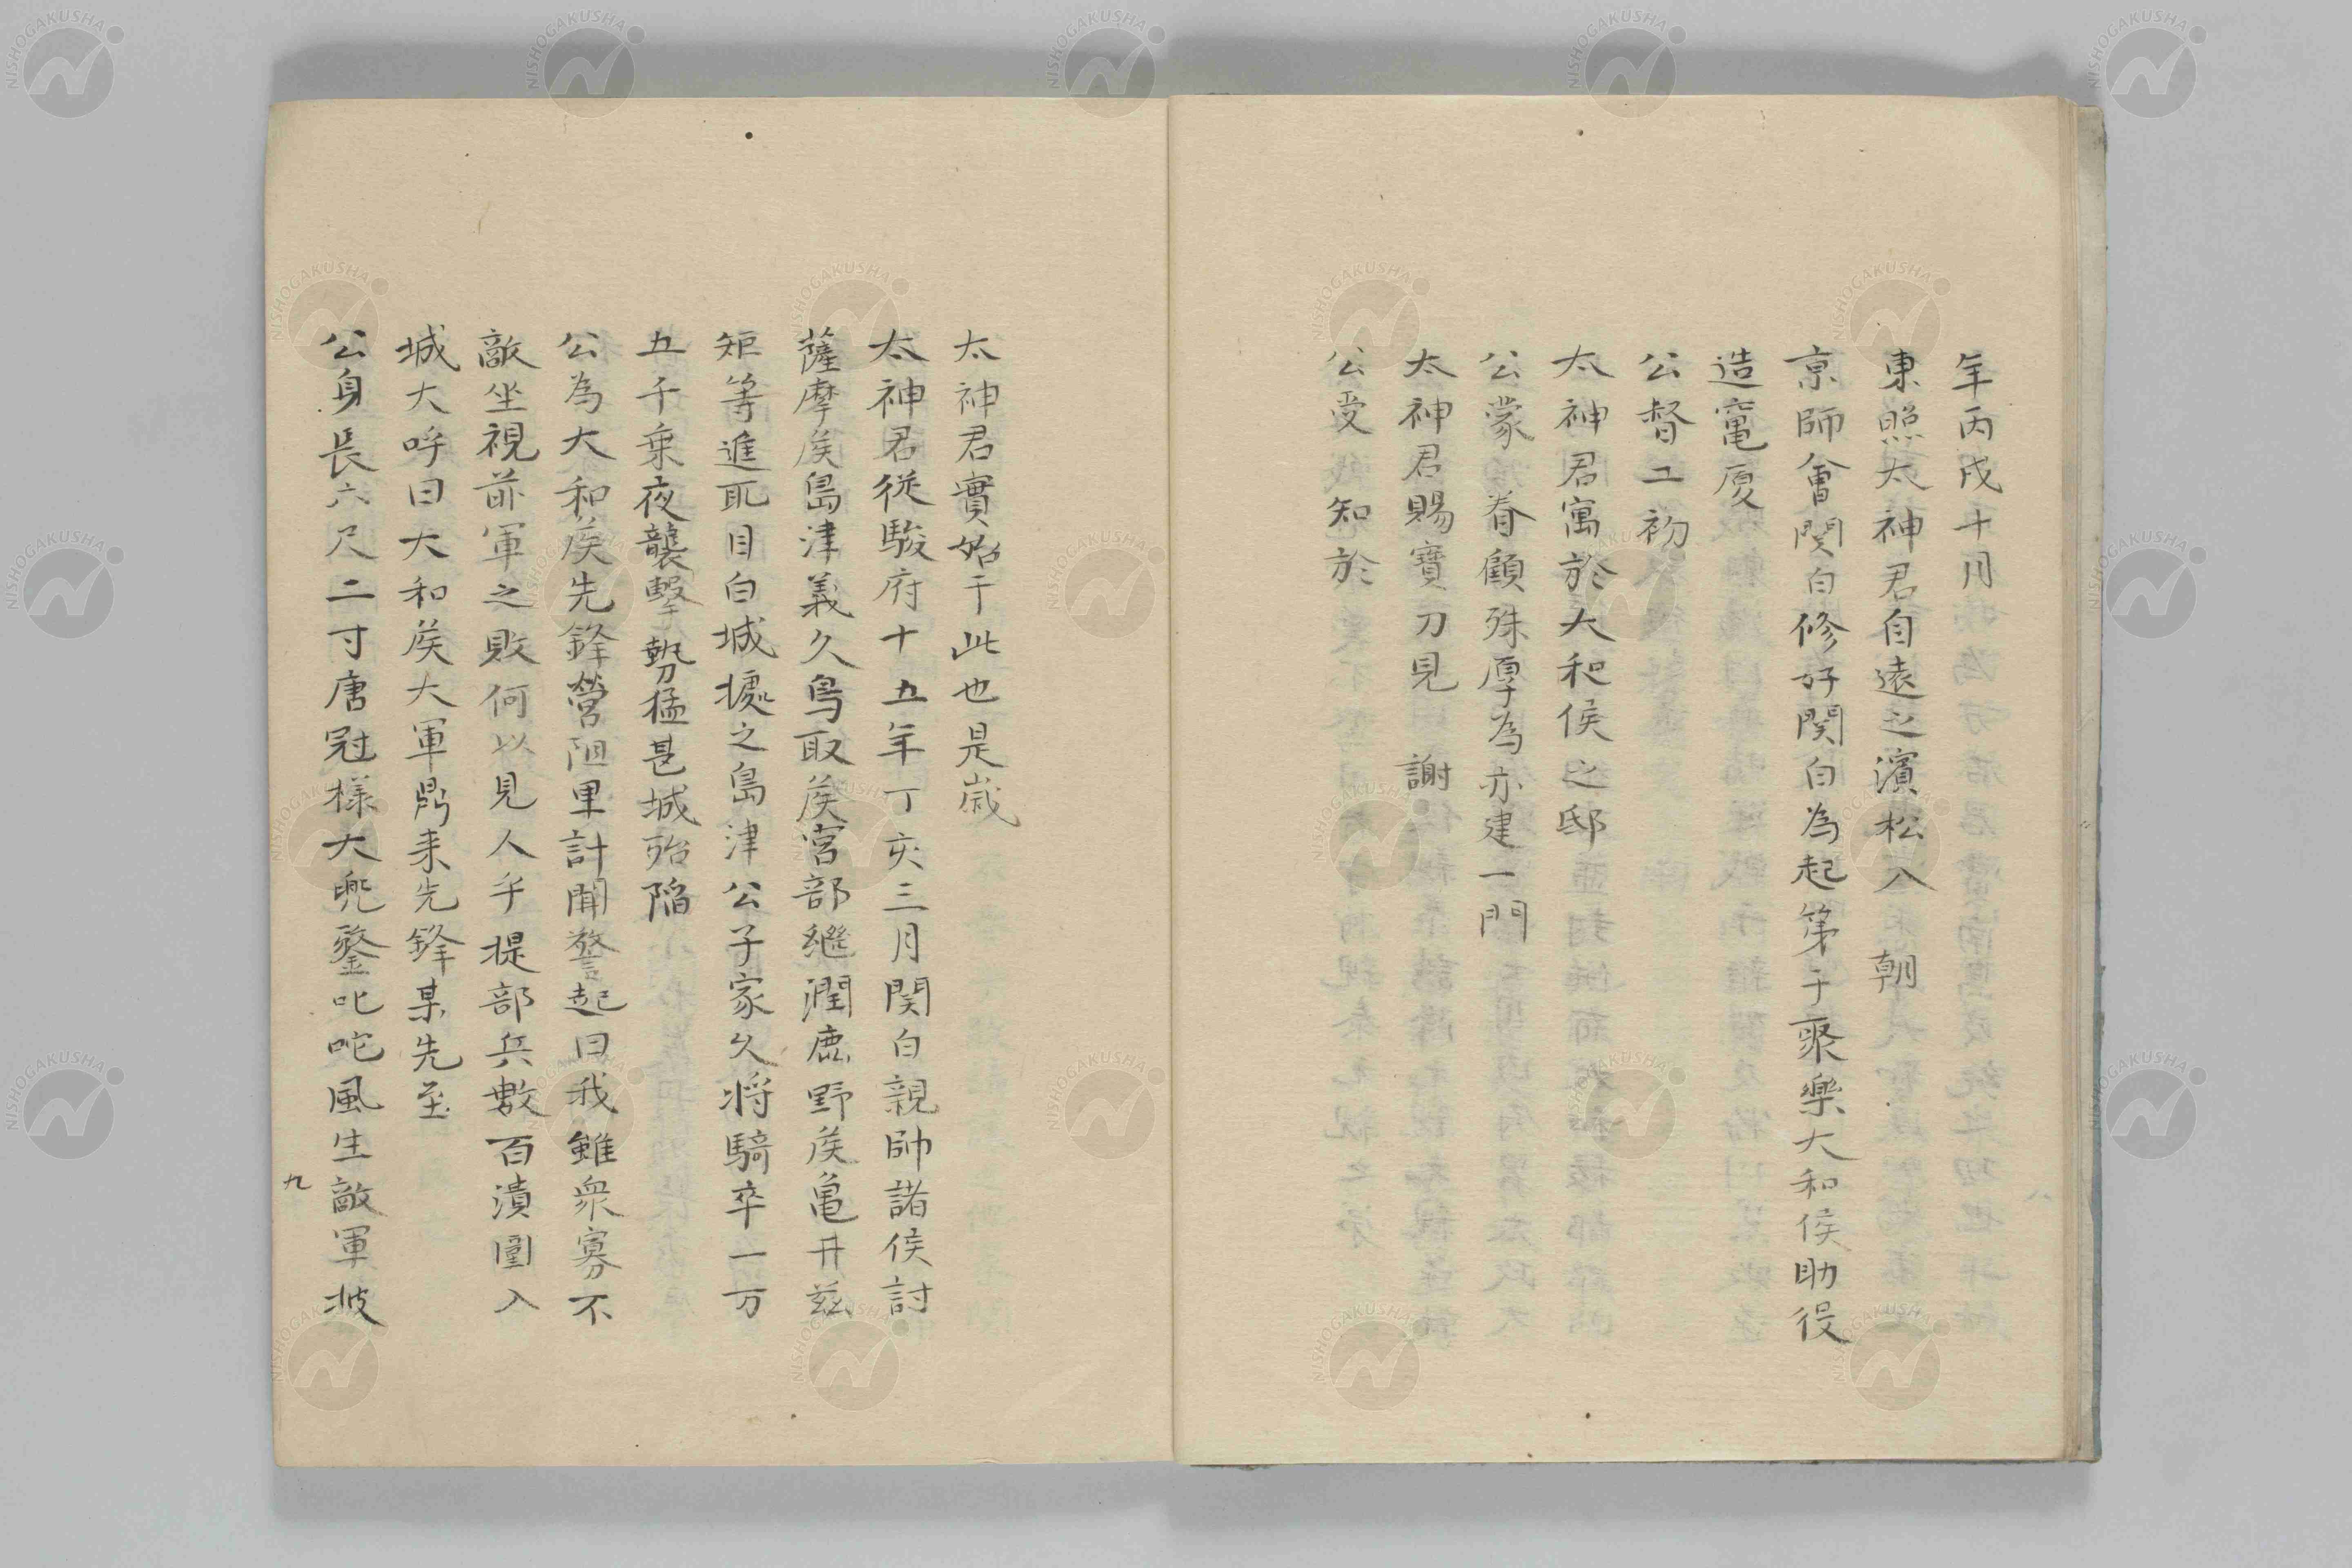 年丙戌十月
東照太神君自遠之濱松入　朝
京師會関白修好関白為起第于聚樂大和侯助役
造竃厦
公督工初
太神君寓於大和侯之邸
公蒙　眷顧殊厚為亦建一門
太神君賜寶刀見　謝
公受　知於
太神君實始于此也是歳
太神君従駿府十五年丁亥三月関白親帥諸侯討
薩摩侯島津義久鳥取侯宮部繼潤鹿野侯亀井茲
矩等進耴目白城㨿之島津公子家久将騎卒一万
五千乗夜襲撃勢猛甚城殆陥
公為大和侯先鋒營阻里計聞警起曰我雖衆寡不
敵坐視前軍之敗何以見人乎提部兵數百潰圍入
城大呼曰大和侯大軍鼎来先鋒某先至
公身長六尺二寸唐冠様大兜鍪叱咤風生敵軍披
九
NISHOGAKUSHA